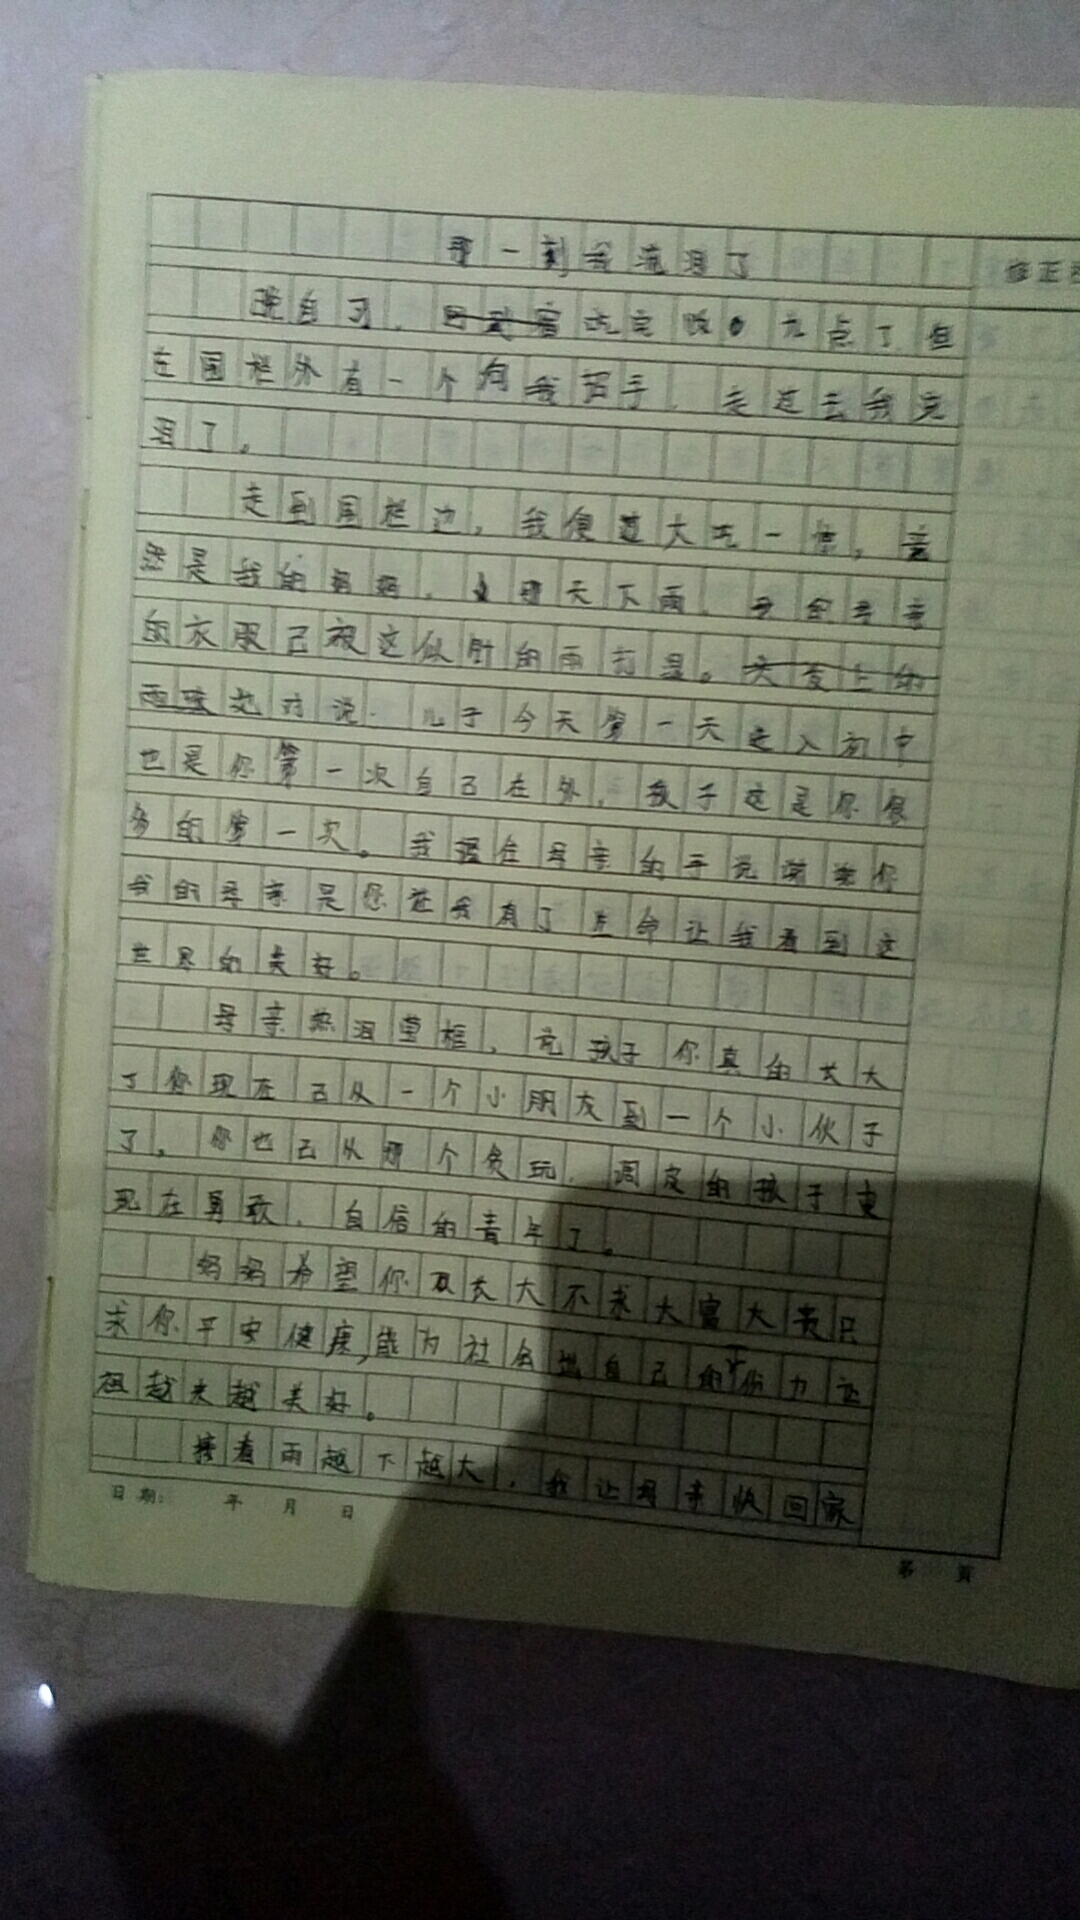 那一刻我流泪了
晚自习，吃完饭。九点了但
在围栏外有一个向我招手，走过去我
泪了。
走到围栏边，我便大吃一惊，竟
然是我的妈妈，那天下雨，母亲
的衣服已被这似的雨打湿。
她对说：儿子今天第一天走入初中
也是你第一次自己在外，孩子这是你很
多的第一次。我握住母亲的手说谢谢你
我的母亲是您让我有了生命让我看到这
世界的美好。
母亲热泪框，说孩子你真的长大
了你现在已从一个小朋友到一个小伙子
了，你也已从那个贪玩，调皮的孩子变
现在勇敢，自信的青年了。
妈妈希望你长大不求大富大贵只
求你平安健康，能为社会出自己的一份力让
祖越来越美好。
接着雨越下越大，我让母亲快回家
日期： 年 月 日
第 页